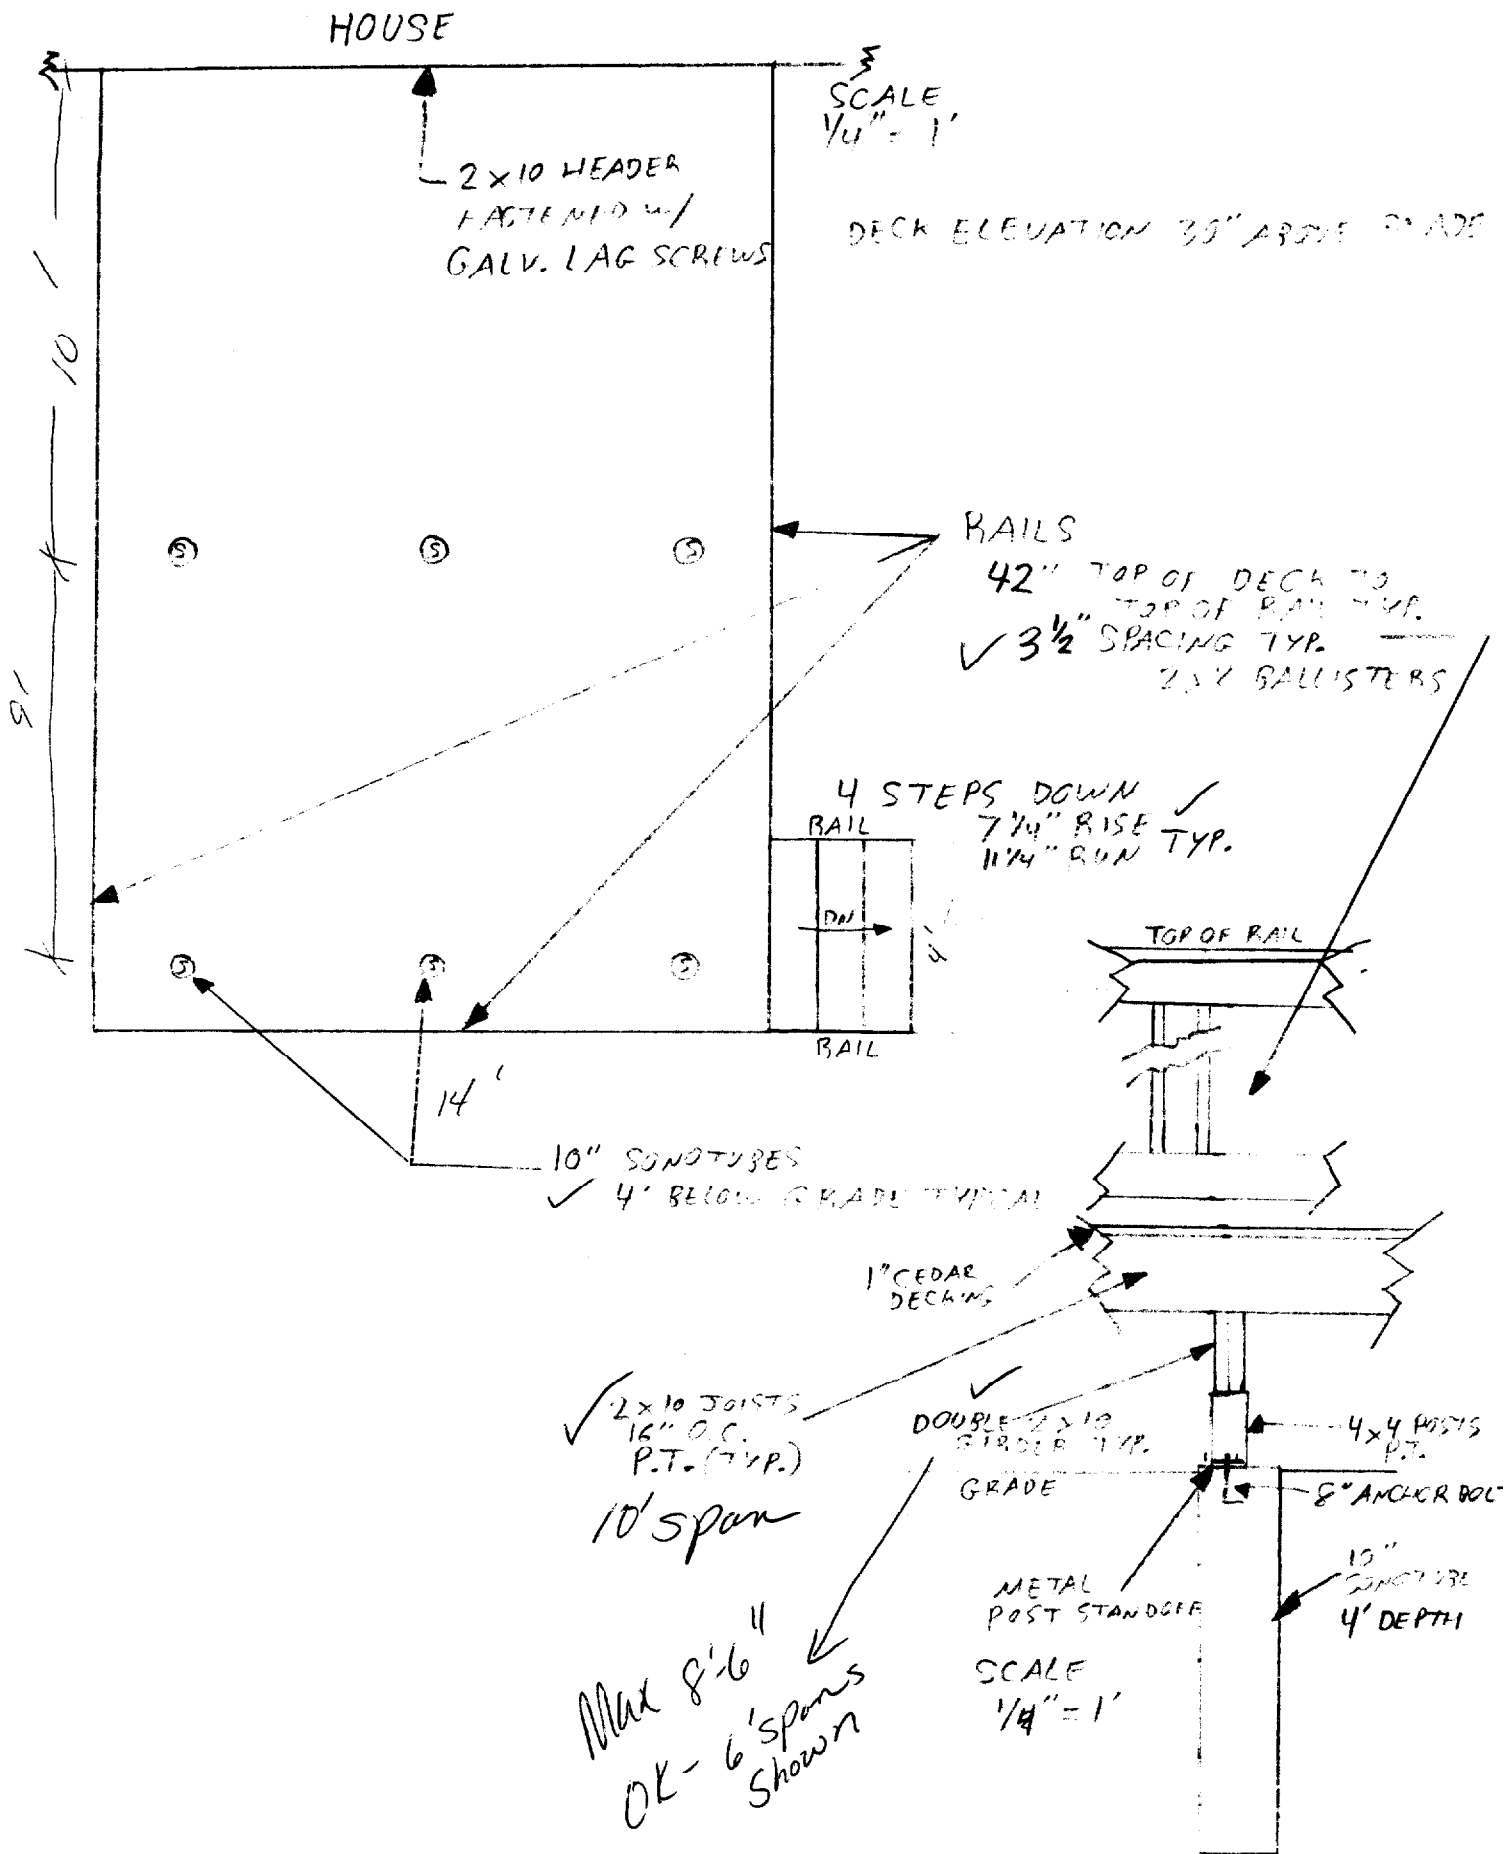 HOUSE
SCALE
1/4" = 1'
2x10 HEADER
FASTENED W/
GALV. LAG SCREWS
DECK ELEVATION 30" ABOVE GRADE
10'
9'
S
S
S
RAILS
42" TOP OF DECK TO
TOP OF RAIL TYP.
✓ 3 1/2" SPACING TYP.
2x2 BALLISTERS
4 STEPS DOWN ✓
7 1/4" RISE
11 1/4" RUN TYP.
RAIL
DN
4'
S
S
S
RAIL
14'
10" SONOTUBES
✓ 4' BELOW GRADE TYPICAL
TOP OF RAIL
1" CEDAR
DECKING
✓ 2x10 JOISTS
16" O.C.
P.T. (TYP.)
10' span
✓
DOUBLE 2x10
GIRDER TYP.
4x4 POSTS
P.T.
GRADE
8" ANCHOR BOLT
METAL
POST STANDOFF
10"
SONOTUBE
4' DEPTH
SCALE
1/4" = 1'
Max 8'-6"
OK - 6' spans
Shown